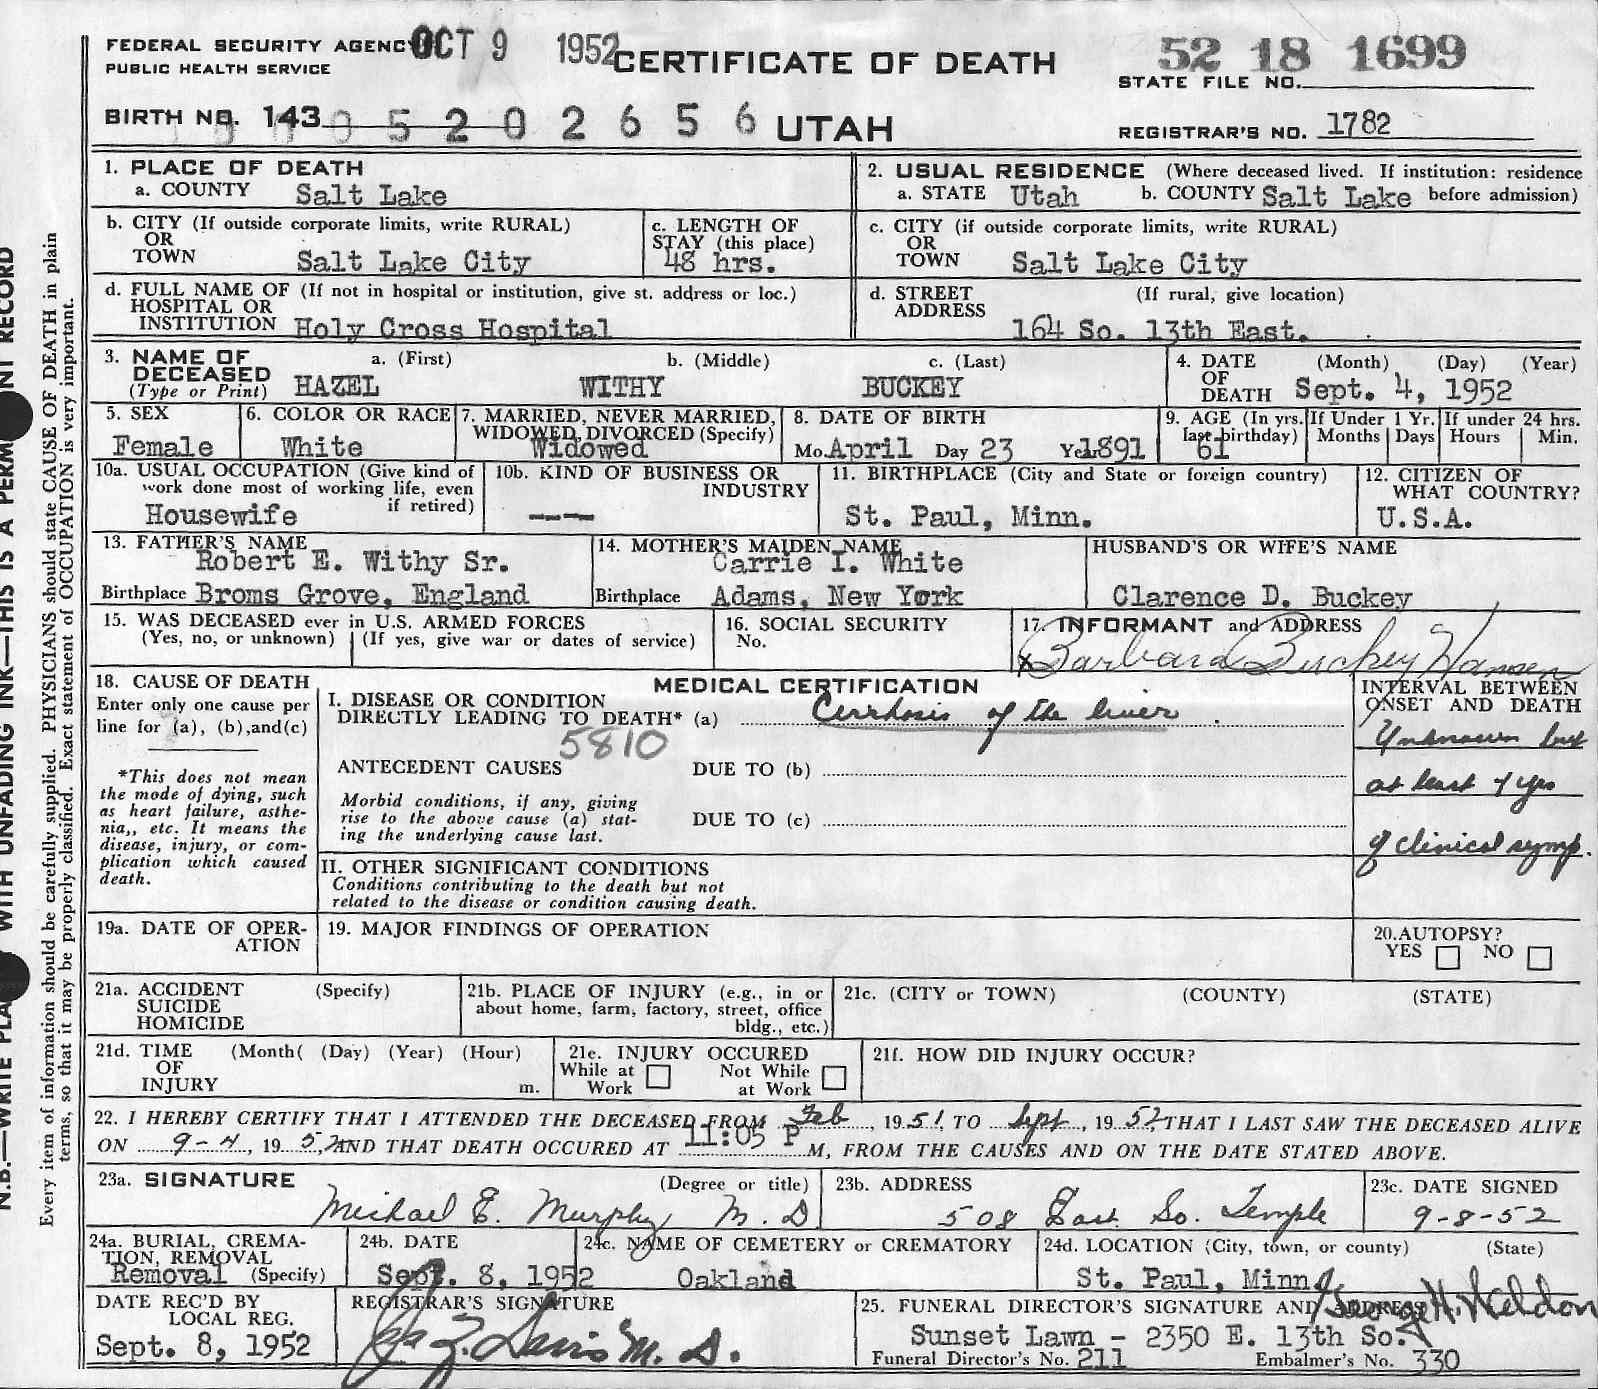 FEDERAL SECURITY AGENCY OCT 9 1952 CERTIFICATE OF DEATH 52 18 1699
PUBLIC HEALTH SERVICE STATE FILE NO.
BIRTH NO. 143 0 5 2 0 2 6 5 6 UTAH REGISTRAR'S NO. 1782
1. PLACE OF DEATH 2. USUAL RESIDENCE (Where deceased lived. If institution: residence
a. COUNTY Salt Lake a. STATE Utah b. COUNTY Salt Lake before admission)
b. CITY (If outside corporate limits, write RURAL) c. LENGTH OF c. CITY (if outside corporate limits, write RURAL)
OR STAY (this place) OR
TOWN Salt Lake City 48 hrs. TOWN Salt Lake City
d. FULL NAME OF (If not in hospital or institution, give st. address or loc.) d. STREET (If rural, give location)
HOSPITAL OR ADDRESS
INSTITUTION Holy Cross Hospital 164 So. 13th East.
3. NAME OF a. (First) b. (Middle) c. (Last) 4. DATE (Month) (Day) (Year)
DECEASED OF
(Type or Print) HAZEL WITHY BUCKEY DEATH Sept. 4, 1952
5. SEX 6. COLOR OR RACE 7. MARRIED, NEVER MARRIED, 8. DATE OF BIRTH 9. AGE (In yrs. If Under 1 Yr. If under 24 hrs.
WIDOWED, DIVORCED (Specify) last birthday) Months Days Hours Min.
Female White Widowed Mo. April Day 23 Yr. 1891 61
10a. USUAL OCCUPATION (Give kind of 10b. KIND OF BUSINESS OR 11. BIRTHPLACE (City and State or foreign country) 12. CITIZEN OF
work done most of working life, even INDUSTRY WHAT COUNTRY?
if retired)
Housewife --- St. Paul, Minn. U.S.A.
13. FATHER'S NAME 14. MOTHER'S MAIDEN NAME HUSBAND'S OR WIFE'S NAME
Robert E. Withy Sr. Carrie I. White
Birthplace Broms Grove, England Birthplace Adams, New York Clarence D. Buckey
15. WAS DECEASED ever in U.S. ARMED FORCES 16. SOCIAL SECURITY 17. INFORMANT and ADDRESS
(Yes, no, or unknown) (If yes, give war or dates of service) No.
x Barbara Buckey Hansen
18. CAUSE OF DEATH MEDICAL CERTIFICATION INTERVAL BETWEEN
Enter only one cause per I. DISEASE OR CONDITION ONSET AND DEATH
line for (a), (b),and(c) DIRECTLY LEADING TO DEATH* (a) Cirrhosis of the liver .
5810 Unknown but
ANTECEDENT CAUSES DUE TO (b) at least 4 yrs
*This does not mean Morbid conditions, if any, giving
the mode of dying, such rise to the above cause (a) stat- DUE TO (c)
as heart failure, asthe- ing the underlying cause last. of clinical symp.
nia,, etc. It means the
disease, injury, or com- II. OTHER SIGNIFICANT CONDITIONS
plication which caused Conditions contributing to the death but not
death. related to the disease or condition causing death.
19a. DATE OF OPER- 19. MAJOR FINDINGS OF OPERATION 20.AUTOPSY?
ATION YES NO
21a. ACCIDENT (Specify) 21b. PLACE OF INJURY (e.g., in or 21c. (CITY or TOWN) (COUNTY) (STATE)
SUICIDE about home, farm, factory, street, office
HOMICIDE bldg., etc.)
21d. TIME (Month( (Day) (Year) (Hour) 21e. INJURY OCCURED 21f. HOW DID INJURY OCCUR?
OF While at Not While
INJURY m. Work at Work
22. I HEREBY CERTIFY THAT I ATTENDED THE DECEASED FROM Feb, 1951, TO Sept, 1952, THAT I LAST SAW THE DECEASED ALIVE
ON 9-4, 1952, AND THAT DEATH OCCURED AT 11:05 P M, FROM THE CAUSES AND ON THE DATE STATED ABOVE.
23a. SIGNATURE (Degree or title) 23b. ADDRESS 23c. DATE SIGNED
Michael E. Murphy M.D 508 East So. Temple 9-8-52
24a. BURIAL, CREMA- 24b. DATE 24c. NAME OF CEMETERY or CREMATORY 24d. LOCATION (City, town, or county) (State)
TION, REMOVAL
Removal (Specify) Sept. 8, 1952 Oakland St. Paul, Minn.
DATE REC'D BY REGISTRAR'S SIGNATURE 25. FUNERAL DIRECTOR'S SIGNATURE AND ADDRESS George H. Weldon
LOCAL REG. Sunset Lawn - 2350 E. 13th So.
Sept. 8, 1952 Davis M. D. Funeral Director's No. 211 Embalmer's No. 330
Every item of information should be carefully supplied. PHYSICIANS should state CAUSE OF DEATH in plain
terms, so that it may be properly classified. Exact statement of OCCUPATION is very important.
N.B.—WRITE WITH UNFADING INK—THIS IS A RECORD